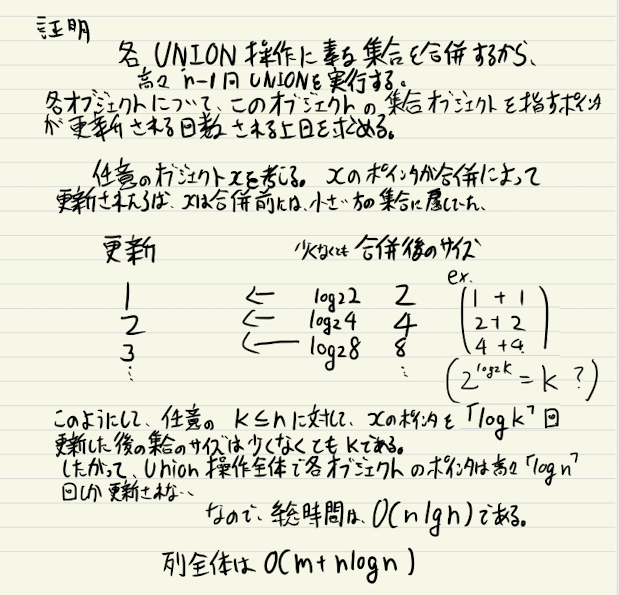 証明
各 UNION 操作に素な集合を合併するから、
高々 n-1回 UNIONを実行する。
各オブジェクトについて、このオブジェクトの集合オブジェクトを指すポインタ
が更新される回数 される上日を求める。
任意のオブジェクトxを考じる。xのポインタが合併によって
更新されたらば、xは合併前には、小さい方の集合に属していた、
更新 少くなくとも 合併後のサイズ
ex.
1 ← log₂2 2 (1 + 1
2 ← log₂4 4 2+2
3 ← log₂8 8 4+4)
⋮ ⋮ (2^{log₂k} = k ?)
このようにして、任意の k≤nに対して、xのポインタを「log k⌉回
更新した後の集合のサイズは少くなくともkである。
したがって、Union 操作全体で各オブジェクトのポインタは高々「log n⌉
回しか更新されない.
なので、総時間は、O(n lg n)である。
列全体は O(m+nlogn)